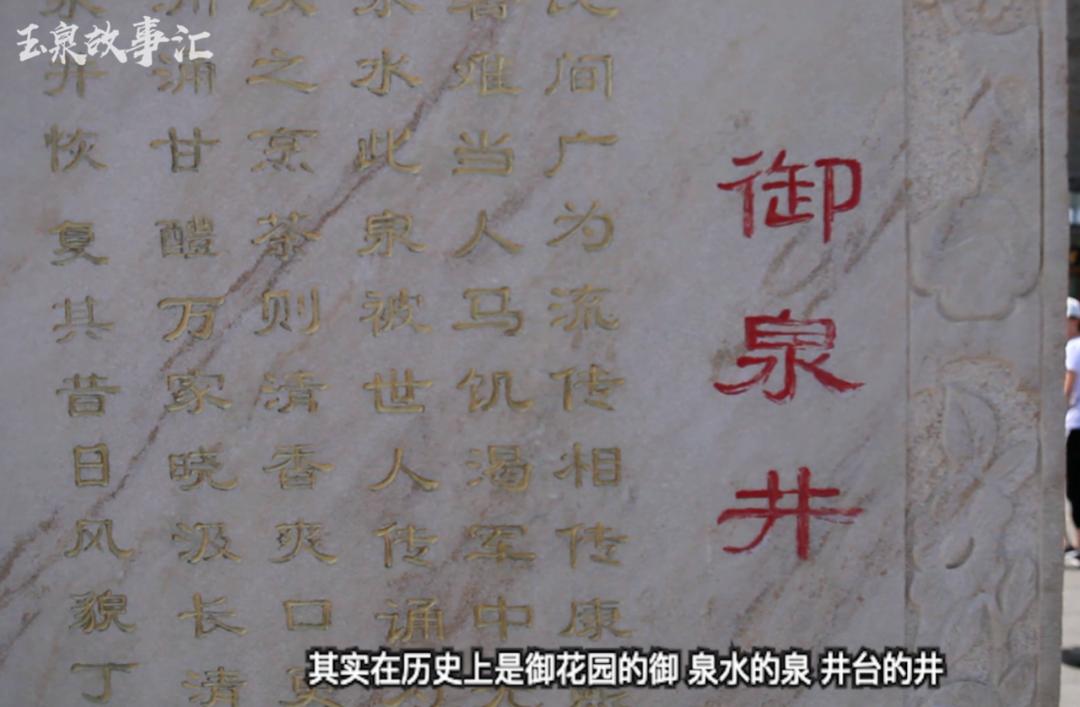 玉泉故事汇
御泉井
间广为流传相传康
难当人马饥渴军中
水此泉被世人传诵
之烹茶则清香爽口
涌甘醴万家晓汲长清
井恢复其昔日风貌丁
其实在历史上是御花园的御 泉水的泉 井台的井